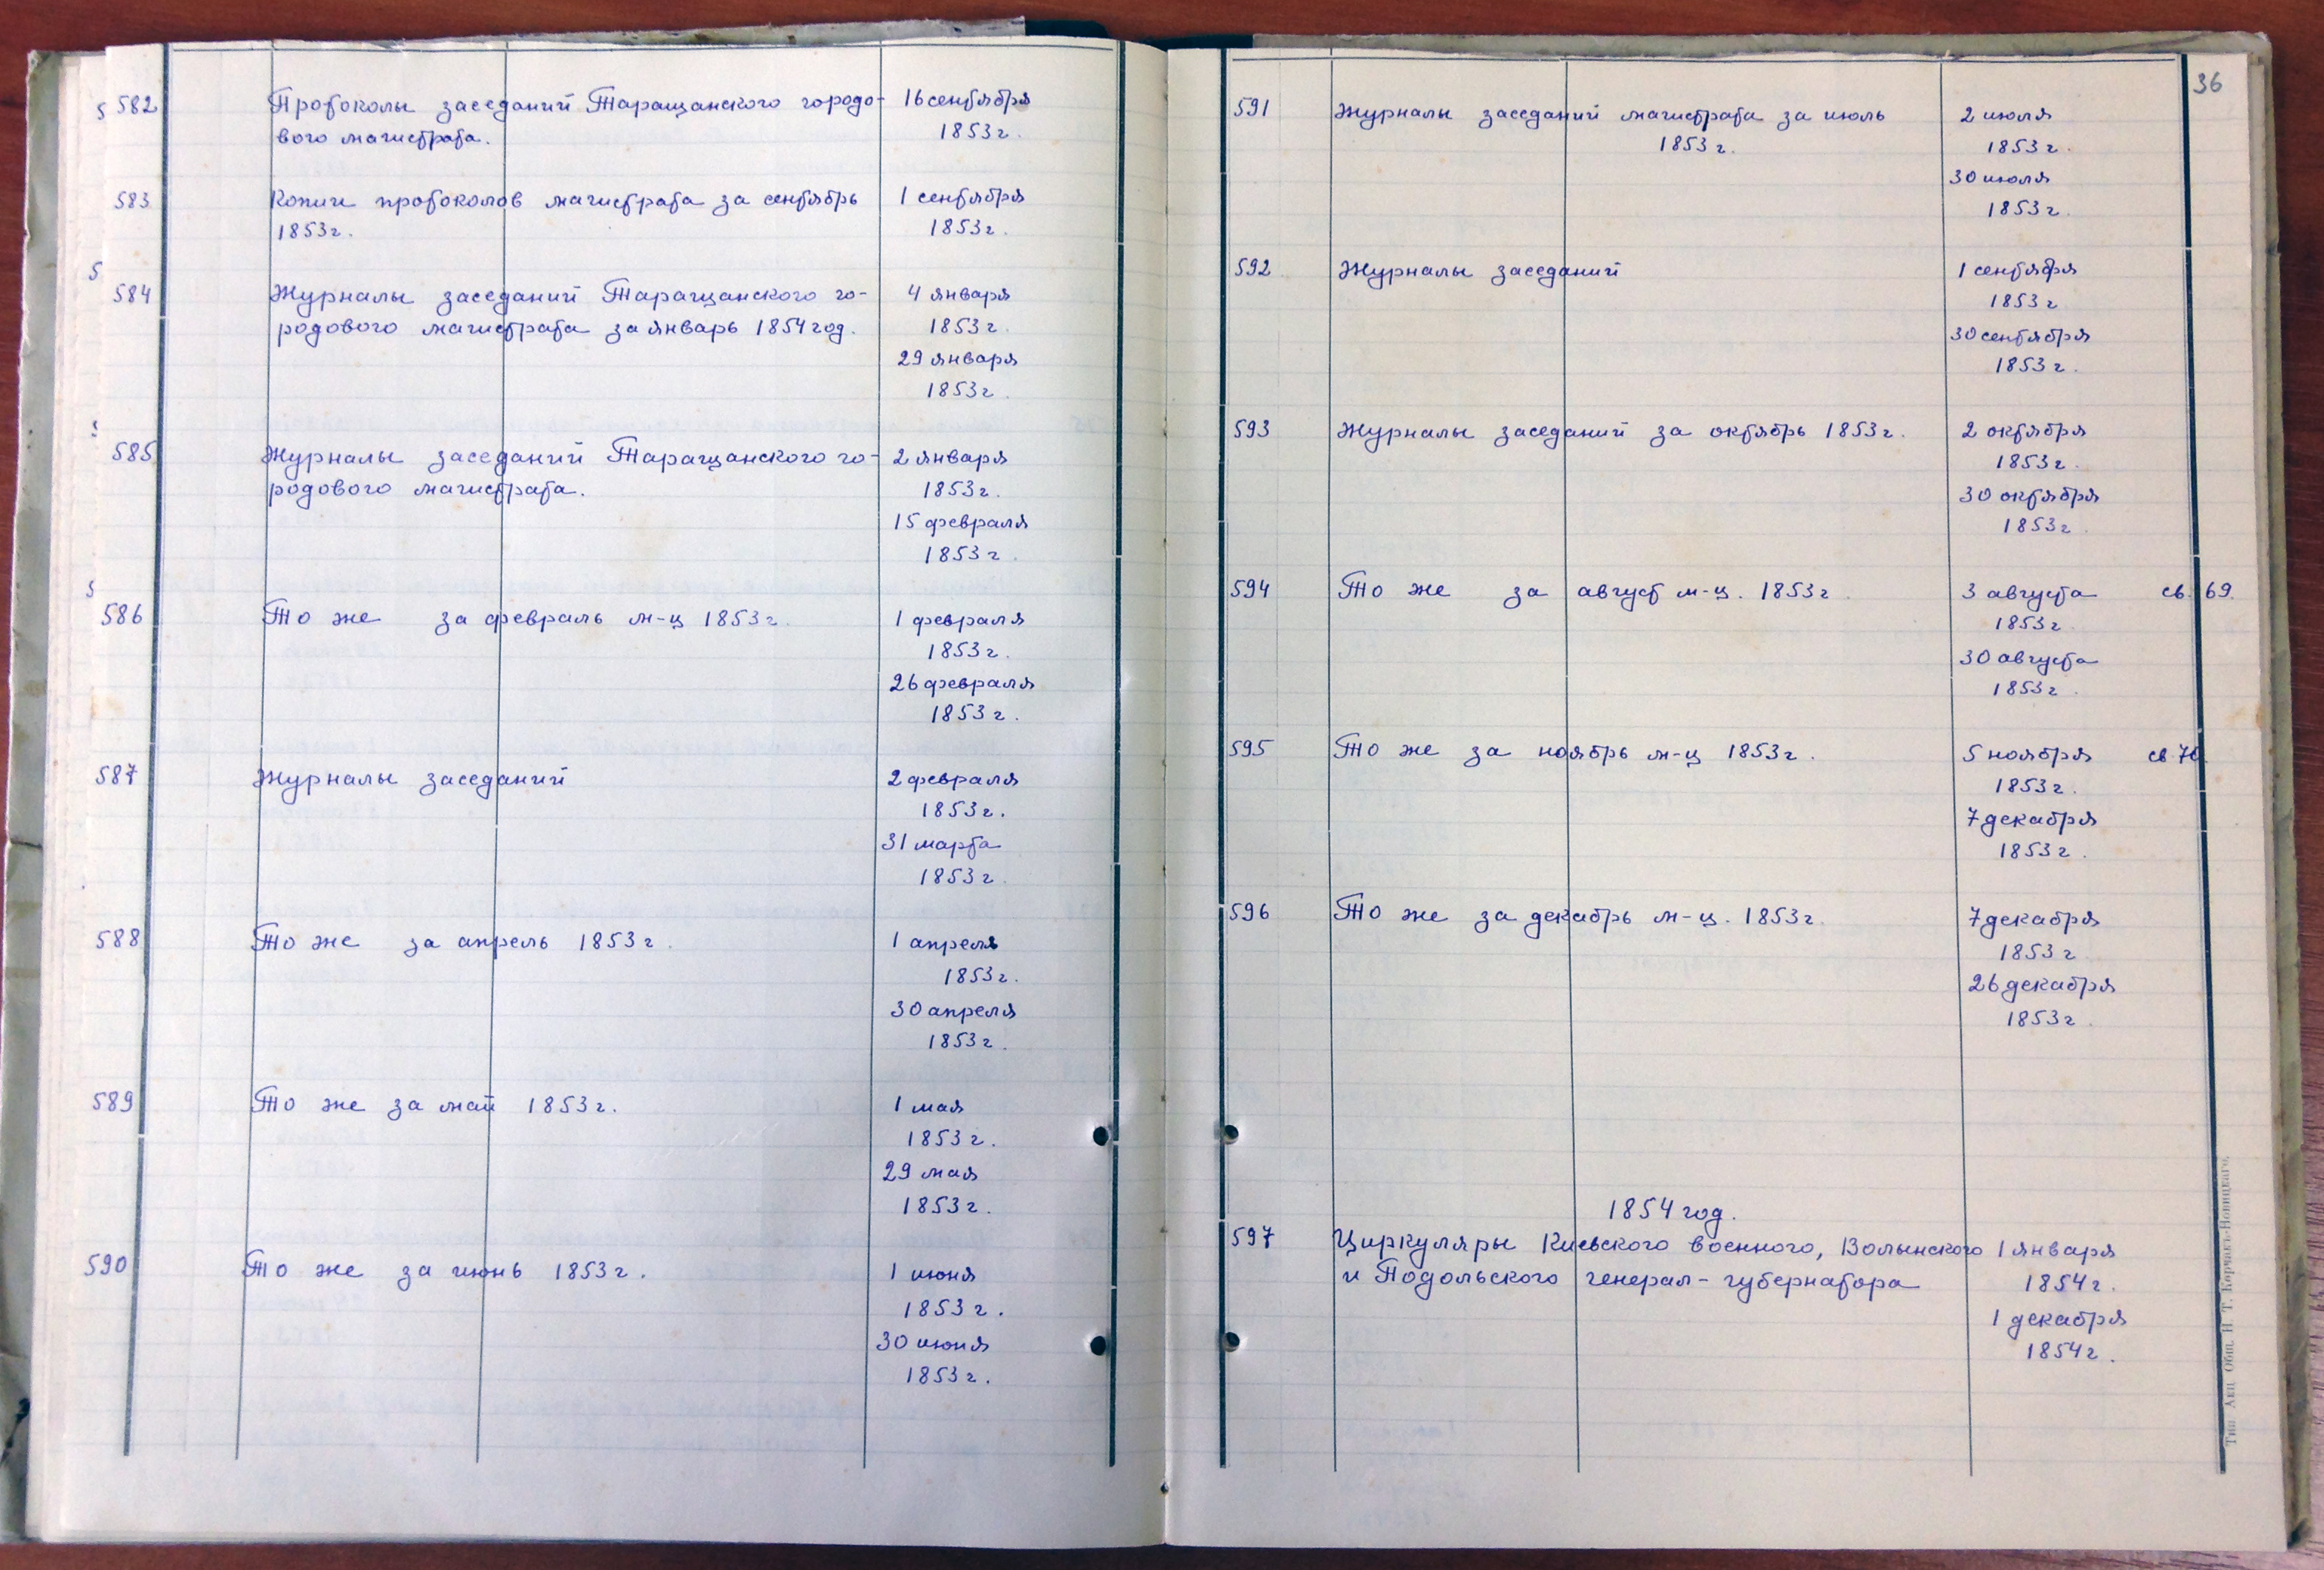 582 Протоколы заседаний Таращанского городо- 16 сентября
вого магистрата. 1853г.
583 Копии протоколов магистрата за сентябрь 1 сентября
1853г. 1853г.
584 Журналы заседаний Таращанского го- 4 января
родового магистрата за январь 1854 год. 1853г.
29 января
1853г.
585 Журналы заседаний Таращанского го- 2 января
родового магистрата. 1853г.
15 февраля
1853г.
586 То же за февраль м-ц 1853г. 1 февраля
1853г.
26 февраля
1853г.
587 Журналы заседаний 2 февраля
1853г.
31 марта
1853г.
588 То же за апрель 1853г. 1 апреля
1853г.
30 апреля
1853г.
589 То же за май 1853г. 1 мая
1853г.
29 мая
1853г.
590 То же за июнь 1853г. 1 июня
1853г.
30 июня
1853г.
36
591 Журналы заседаний магистрата за июль 2 июля
1853г. 1853г.
30 июля
1853г.
592 Журналы заседаний 1 сентября
1853г
30 сентября
1853г.
593 Журналы заседаний за октябрь 1853г. 2 октября
1853г.
30 октября
1853г.
594 То же за август м-ц. 1853г. 3 августа св. 69.
1853г.
30 августа
1853г.
595 То же за ноябрь м-ц 1853г. 5 ноября св. 70.
1853г.
7 декабря
1853г.
596 То же за декабрь м-ц. 1853г. 7 декабря
1853г
26 декабря
1853г.
1854 год.
597 Циркуляры Киевского военного, Волынского 1 января
и Подольского генерал-губернатора 1854г.
1 декабря
1854г.
Тип. Акц. Общ. Н. Т. Корчакъ-Новицкаго.